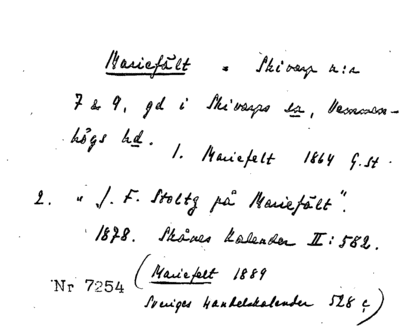 Mariefält = Skivarp n:r
7 & 9, gd i Skivarps sn, Vemmen-
högs hd.
1. Mariefelt 1864 G.st.
2. "J. F. Stoltz på Mariefält".
1878. Skånes Kalender II:582.
Nr 7254 (Mariefelt 1889
Sveriges Handelskalender 528 c)